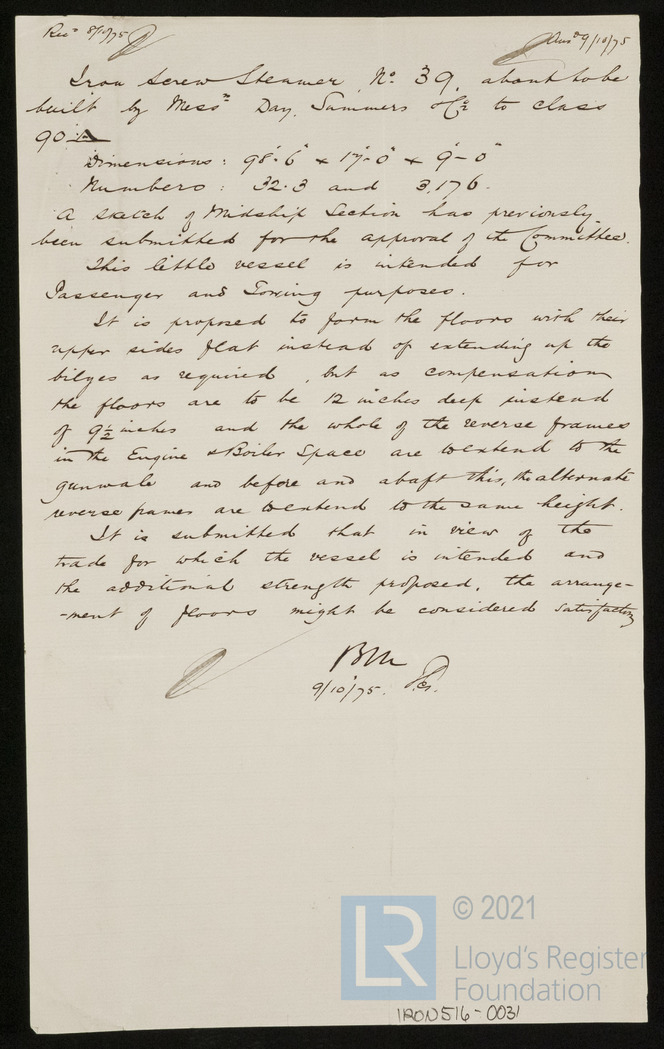 Recd 8/10/75
Ansd 9/10/75
Iron Screw Steamer, No 39, about to be
built by Messrs Day, Summers & Co to class
90 A
Dimensions: 98'-6" x 17'-0" x 9'-0"
Numbers: 32.3 and 3,176.
A sketch of Midship Section has previously
been submitted for the approval of the Committee.
This little vessel is intended for
Passenger and Towing purposes.
It is proposed to form the floors with their
upper sides flat instead of extending up the
bilges as required, but as compensation
the floors are to be 12 inches deep instead
of 9½ inches and the whole of the reverse frames
in the Engine & Boiler Space are to extend to the
gunwale and before and abaft this, the alternate
reverse frames are to extend to the same height.
It is submitted that in view of the
trade for which the vessel is intended and
the additional strength proposed, the arrange-
-ment of floors might be considered satisfactory
9/10/75.
LR
© 2021
Lloyd's Register
Foundation
IRON516-0031